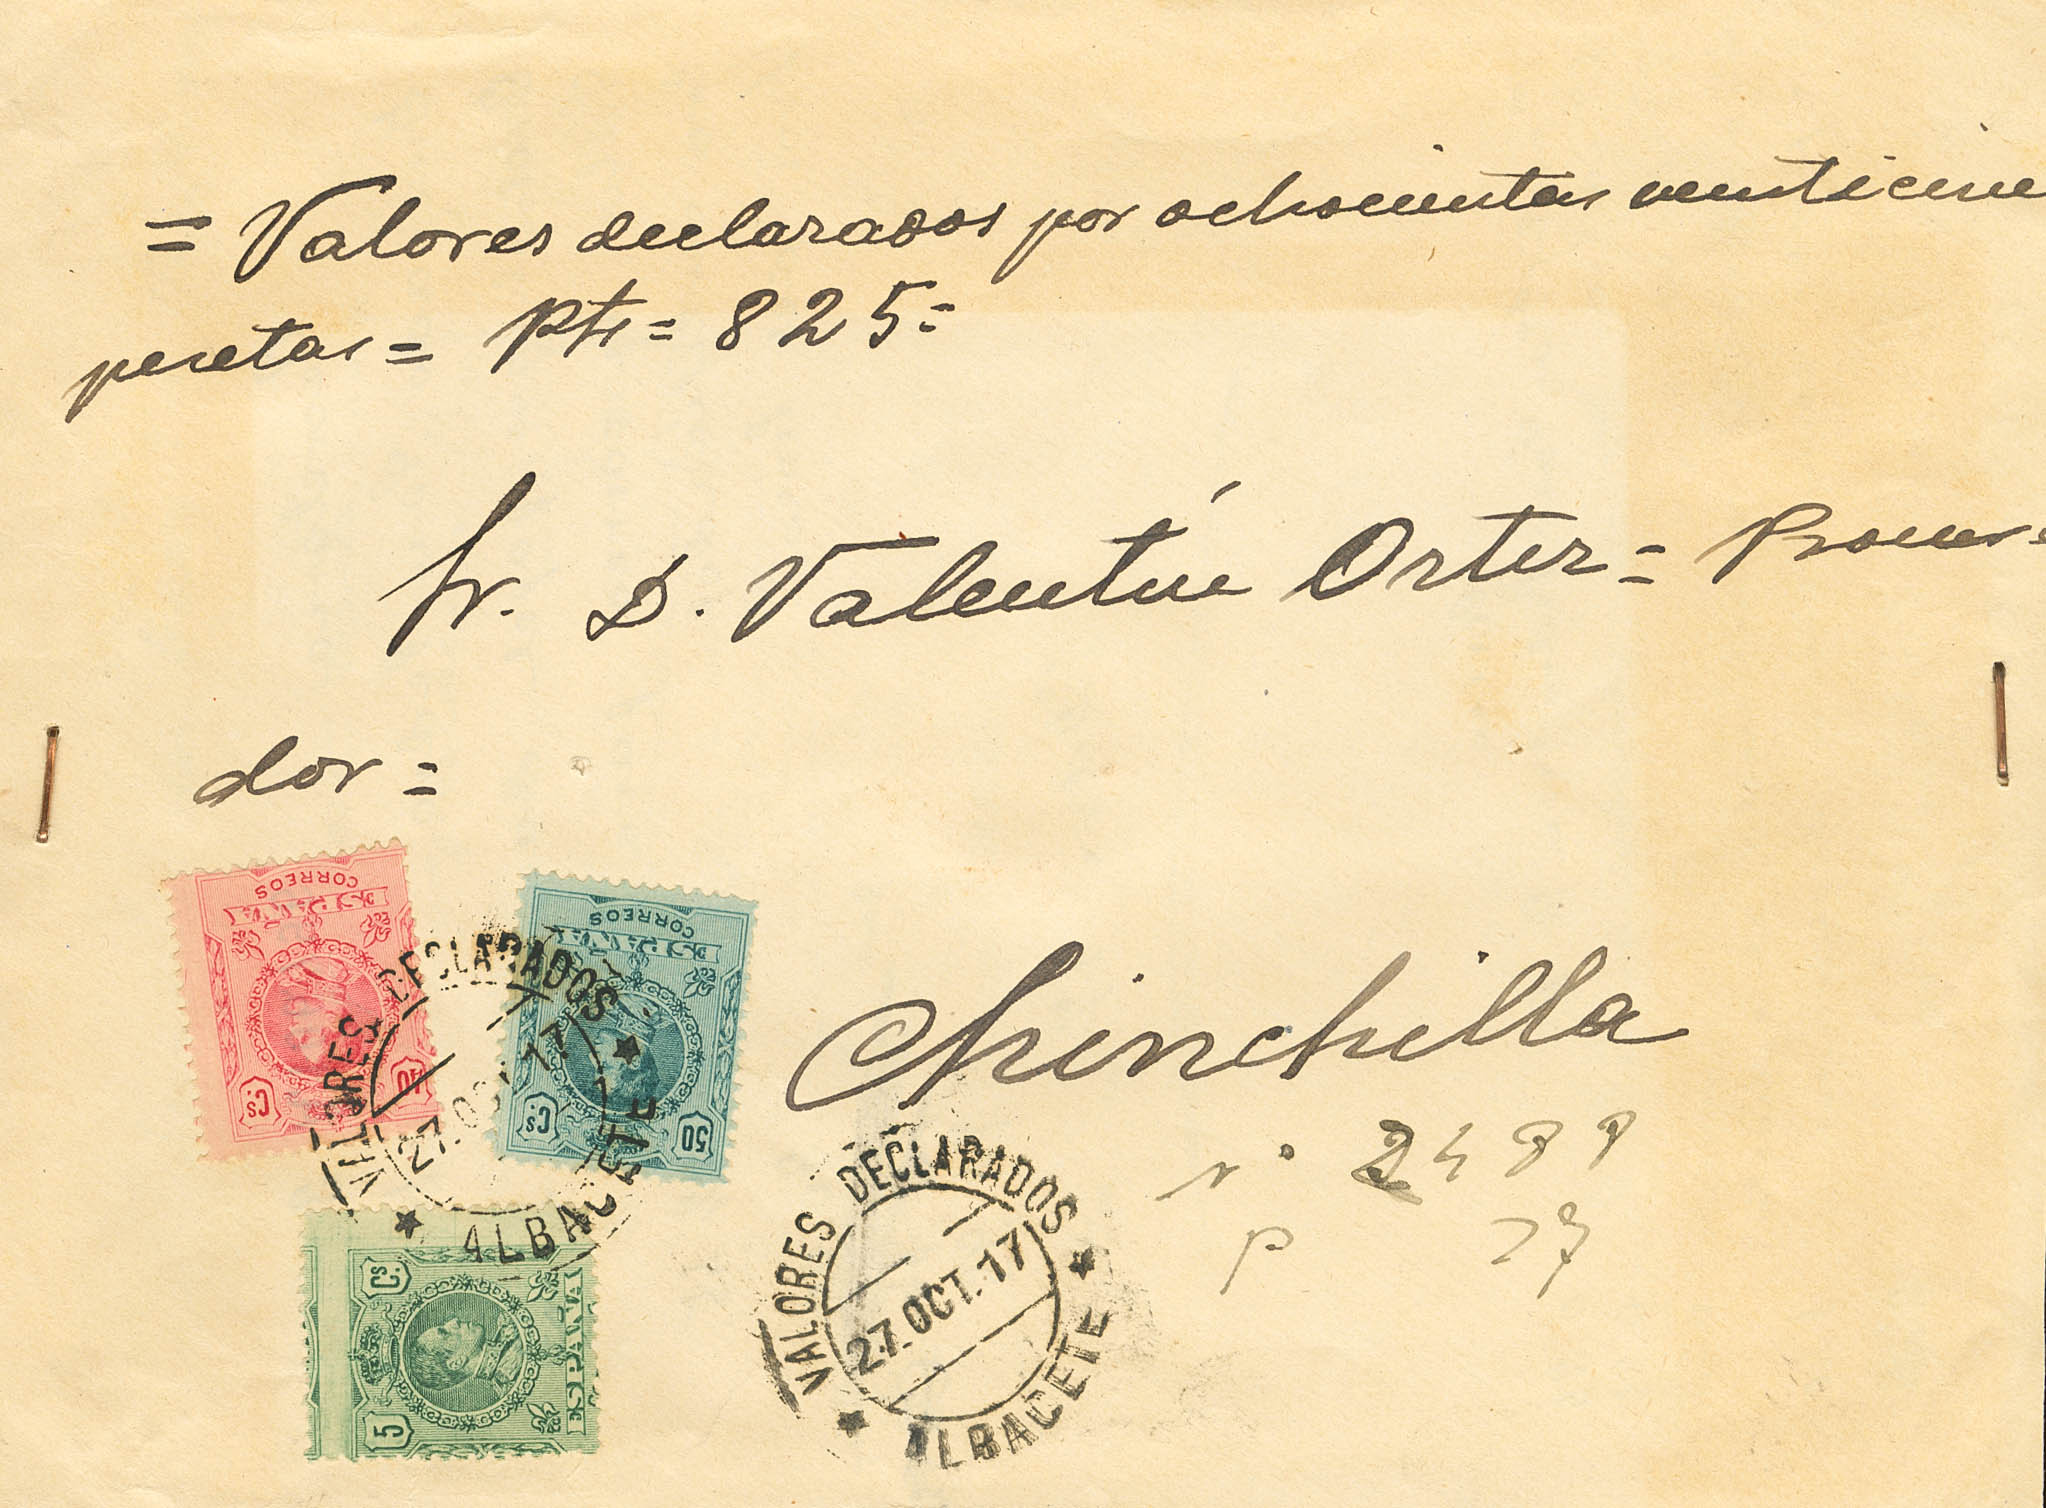 = Valores declarados por ochocientas venticinc
pesetas = Pts = 825 =
Sr. D. Valentín Orter = Procura=
dor =
Chinchilla
nº 2499
p 27
CORREOS
ESPAÑA
40 Cs.
CORREOS
ESPAÑA
50 Cs.
VALORES DECLARADOS
27.OCT.17
ALBACETE
ESPAÑA
5 Cs.
VALORES DECLARADOS
27.OCT.17
ALBACETE